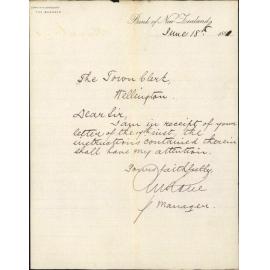 THE MANAGER
Bank of New Zealand,
June 15th 18
The Town Clerk,
Wellington.
Dear Sir,
I am in receipt of your
letter of the inst, the
instructions contained therein
shall have my attention.
Yours faithfully,
Manager.